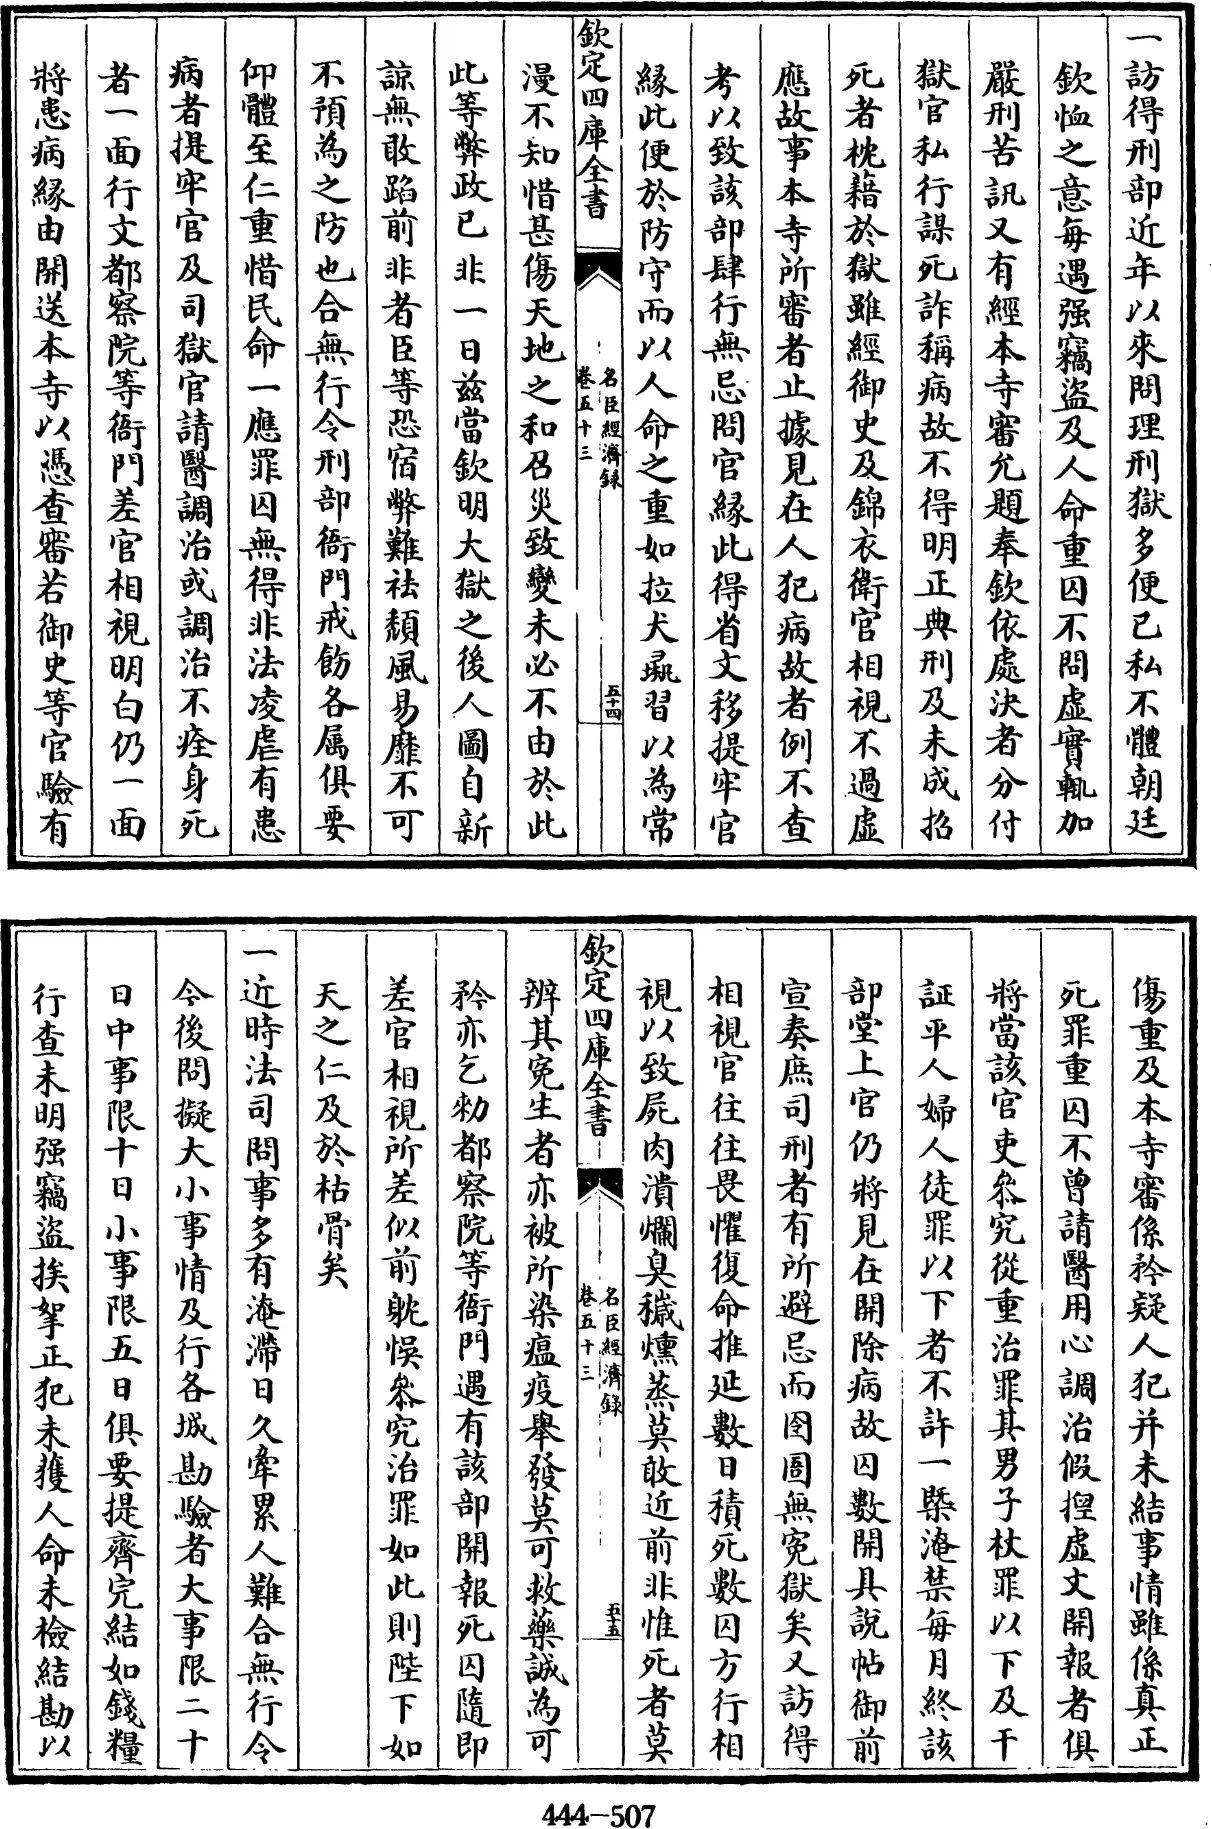 一訪得刑部近年以來問理刑獄多便已私不體朝廷
欽恤之意每遇强竊盜及人命重囚不問虛實輒加
嚴刑苦訊又有經本寺審允題奉欽依處決者分付
獄官私行謀死詐稱病故不得明正典刑及未成招
死者枕藉於獄雖經御史及錦衣衛官相視不過虛
應故事本寺所審者止據見在人犯病故者例不查
考以致該部肆行無忌問官緣此得省文移提牢官
緣此便於防守而以人命之重如拉犬彘習以為常
欽定四庫全書
名臣經濟録
卷五十三
五十四
漫不知惜甚傷天地之和召災致變未必不由於此
此等弊政已非一日兹當欽明大獄之後人圖自新
諒無敢蹈前非者臣等恐宿弊難祛頽風易靡不可
不預為之防也合無行令刑部衙門戒飭各屬俱要
仰體至仁重惜民命一應罪囚無得非法凌虐有患
病者提牢官及司獄官請醫調治或調治不痊身死
者一面行文都察院等衙門差官相視明白仍一面
將患病緣由開送本寺以憑查審若御史等官驗有
傷重及本寺審係矜疑人犯并未結事情雖係真正
死罪重囚不曾請醫用心調治假揑虛文開報者俱
將當該官吏叅究從重治罪其男子杖罪以下及干
証平人婦人徒罪以下者不許一槩淹禁每月終該
部堂上官仍將見在開除病故囚數開具說帖御前
宣奏庶司刑者有所避忌而囹圄無寃獄矣又訪得
相視官往往畏懼復命推延數日積死數囚方行相
視以致屍肉潰爛臭穢燻蒸莫敢近前非惟死者莫
欽定四庫全書
名臣經濟録
卷五十三
五十五
辨其寃生者亦被所染瘟疫舉發莫可救藥誠為可
矜亦乞勑都察院等衙門遇有該部開報死囚隨即
差官相視所差似前躭悞叅究治罪如此則陛下如
天之仁及於枯骨矣
一近時法司問事多有淹滯日久牽累人難合無行令
今後問擬大小事情及行各城勘驗者大事限二十
日中事限十日小事限五日俱要提齊完結如錢糧
行查未明强竊盜挨拏正犯未獲人命未檢結勘以
444-507